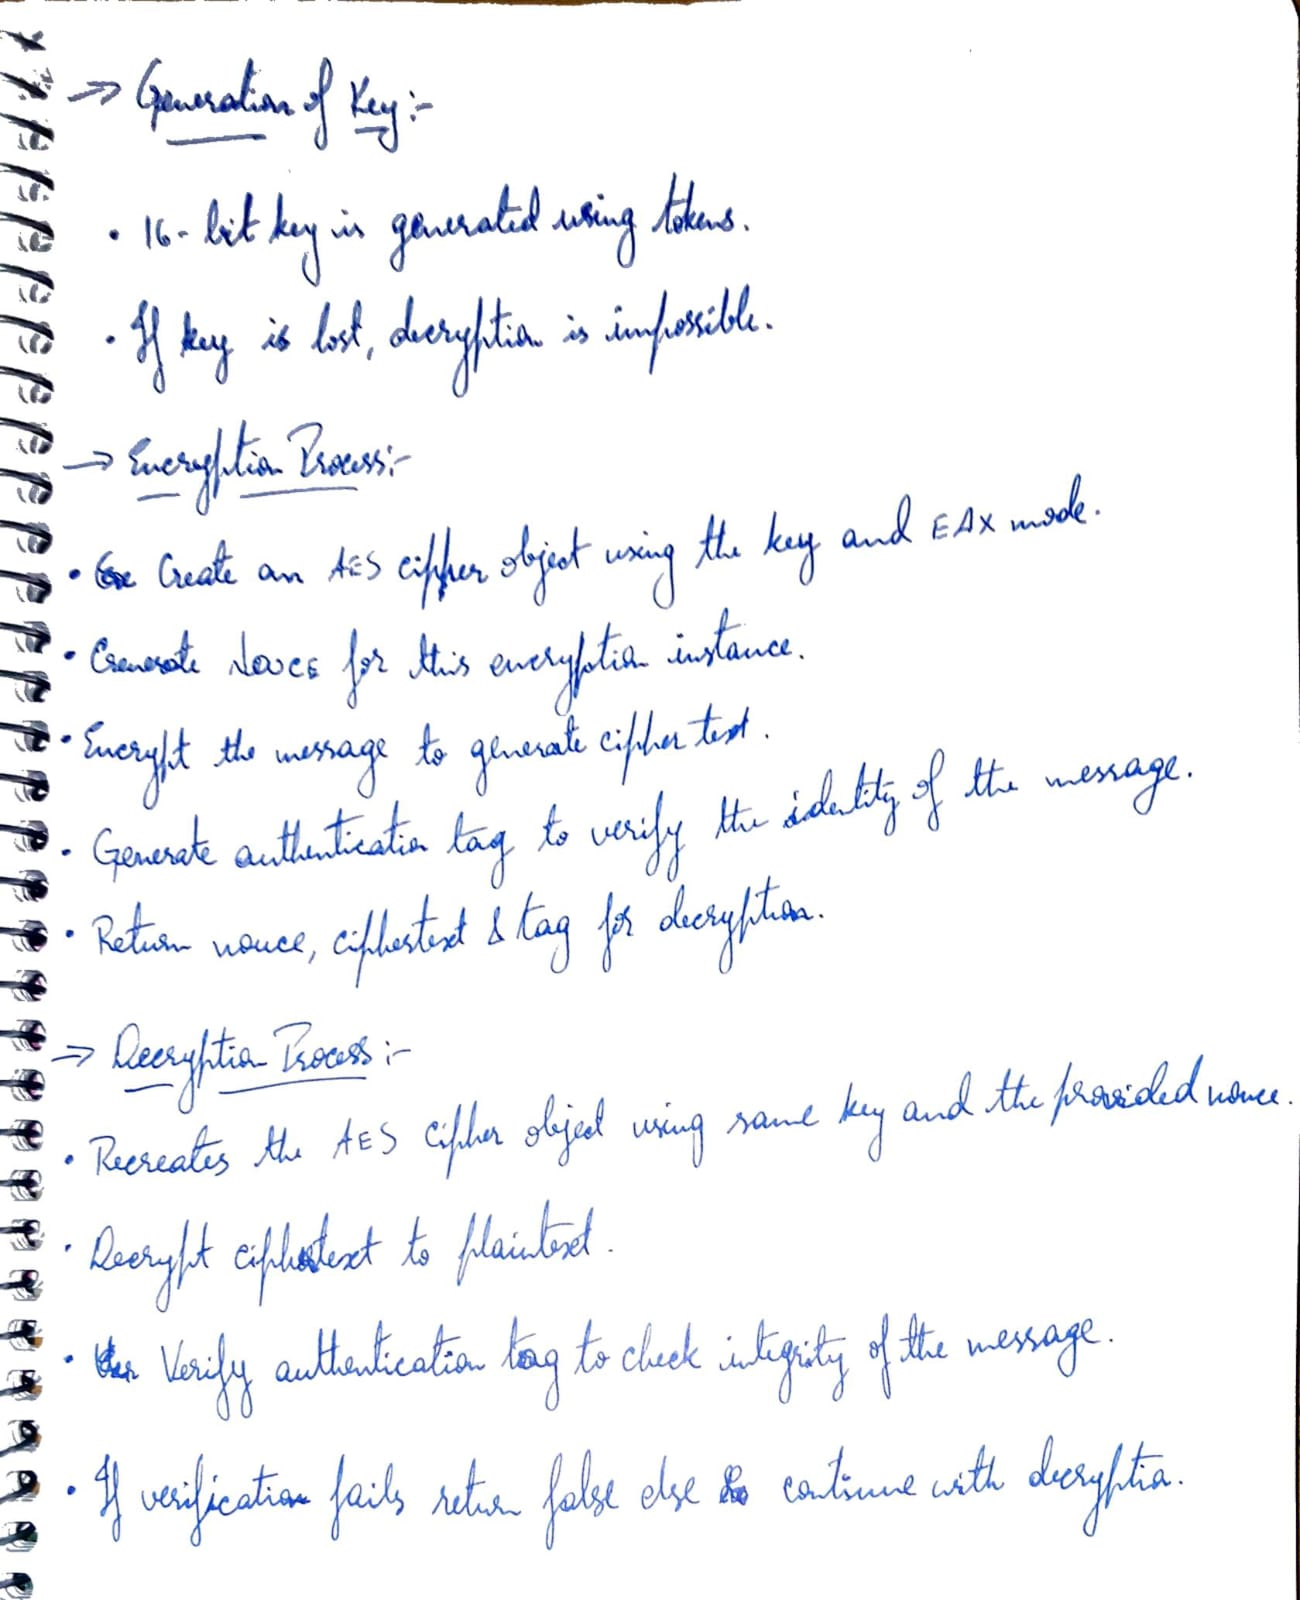 → Generation of Key:-
• 16-bit key is generated using tokens.
• If key is lost, decryption is impossible.
→ Encryption Process:-
• Create an AES cipher object using the key and EAX mode.
• Generate Nonce for this encryption instance.
• Encrypt the message to generate cipher text.
• Generate authentication tag to verify the identity of the message.
• Return nonce, ciphertext & tag for decryption.
→ Decryption Process:-
• Recreates the AES cipher object using same key and the provided nonce.
• Decrypt ciphertext to plaintext.
• Verify authentication tag to check integrity of the message.
• If verification fails return false else continue with decryption.